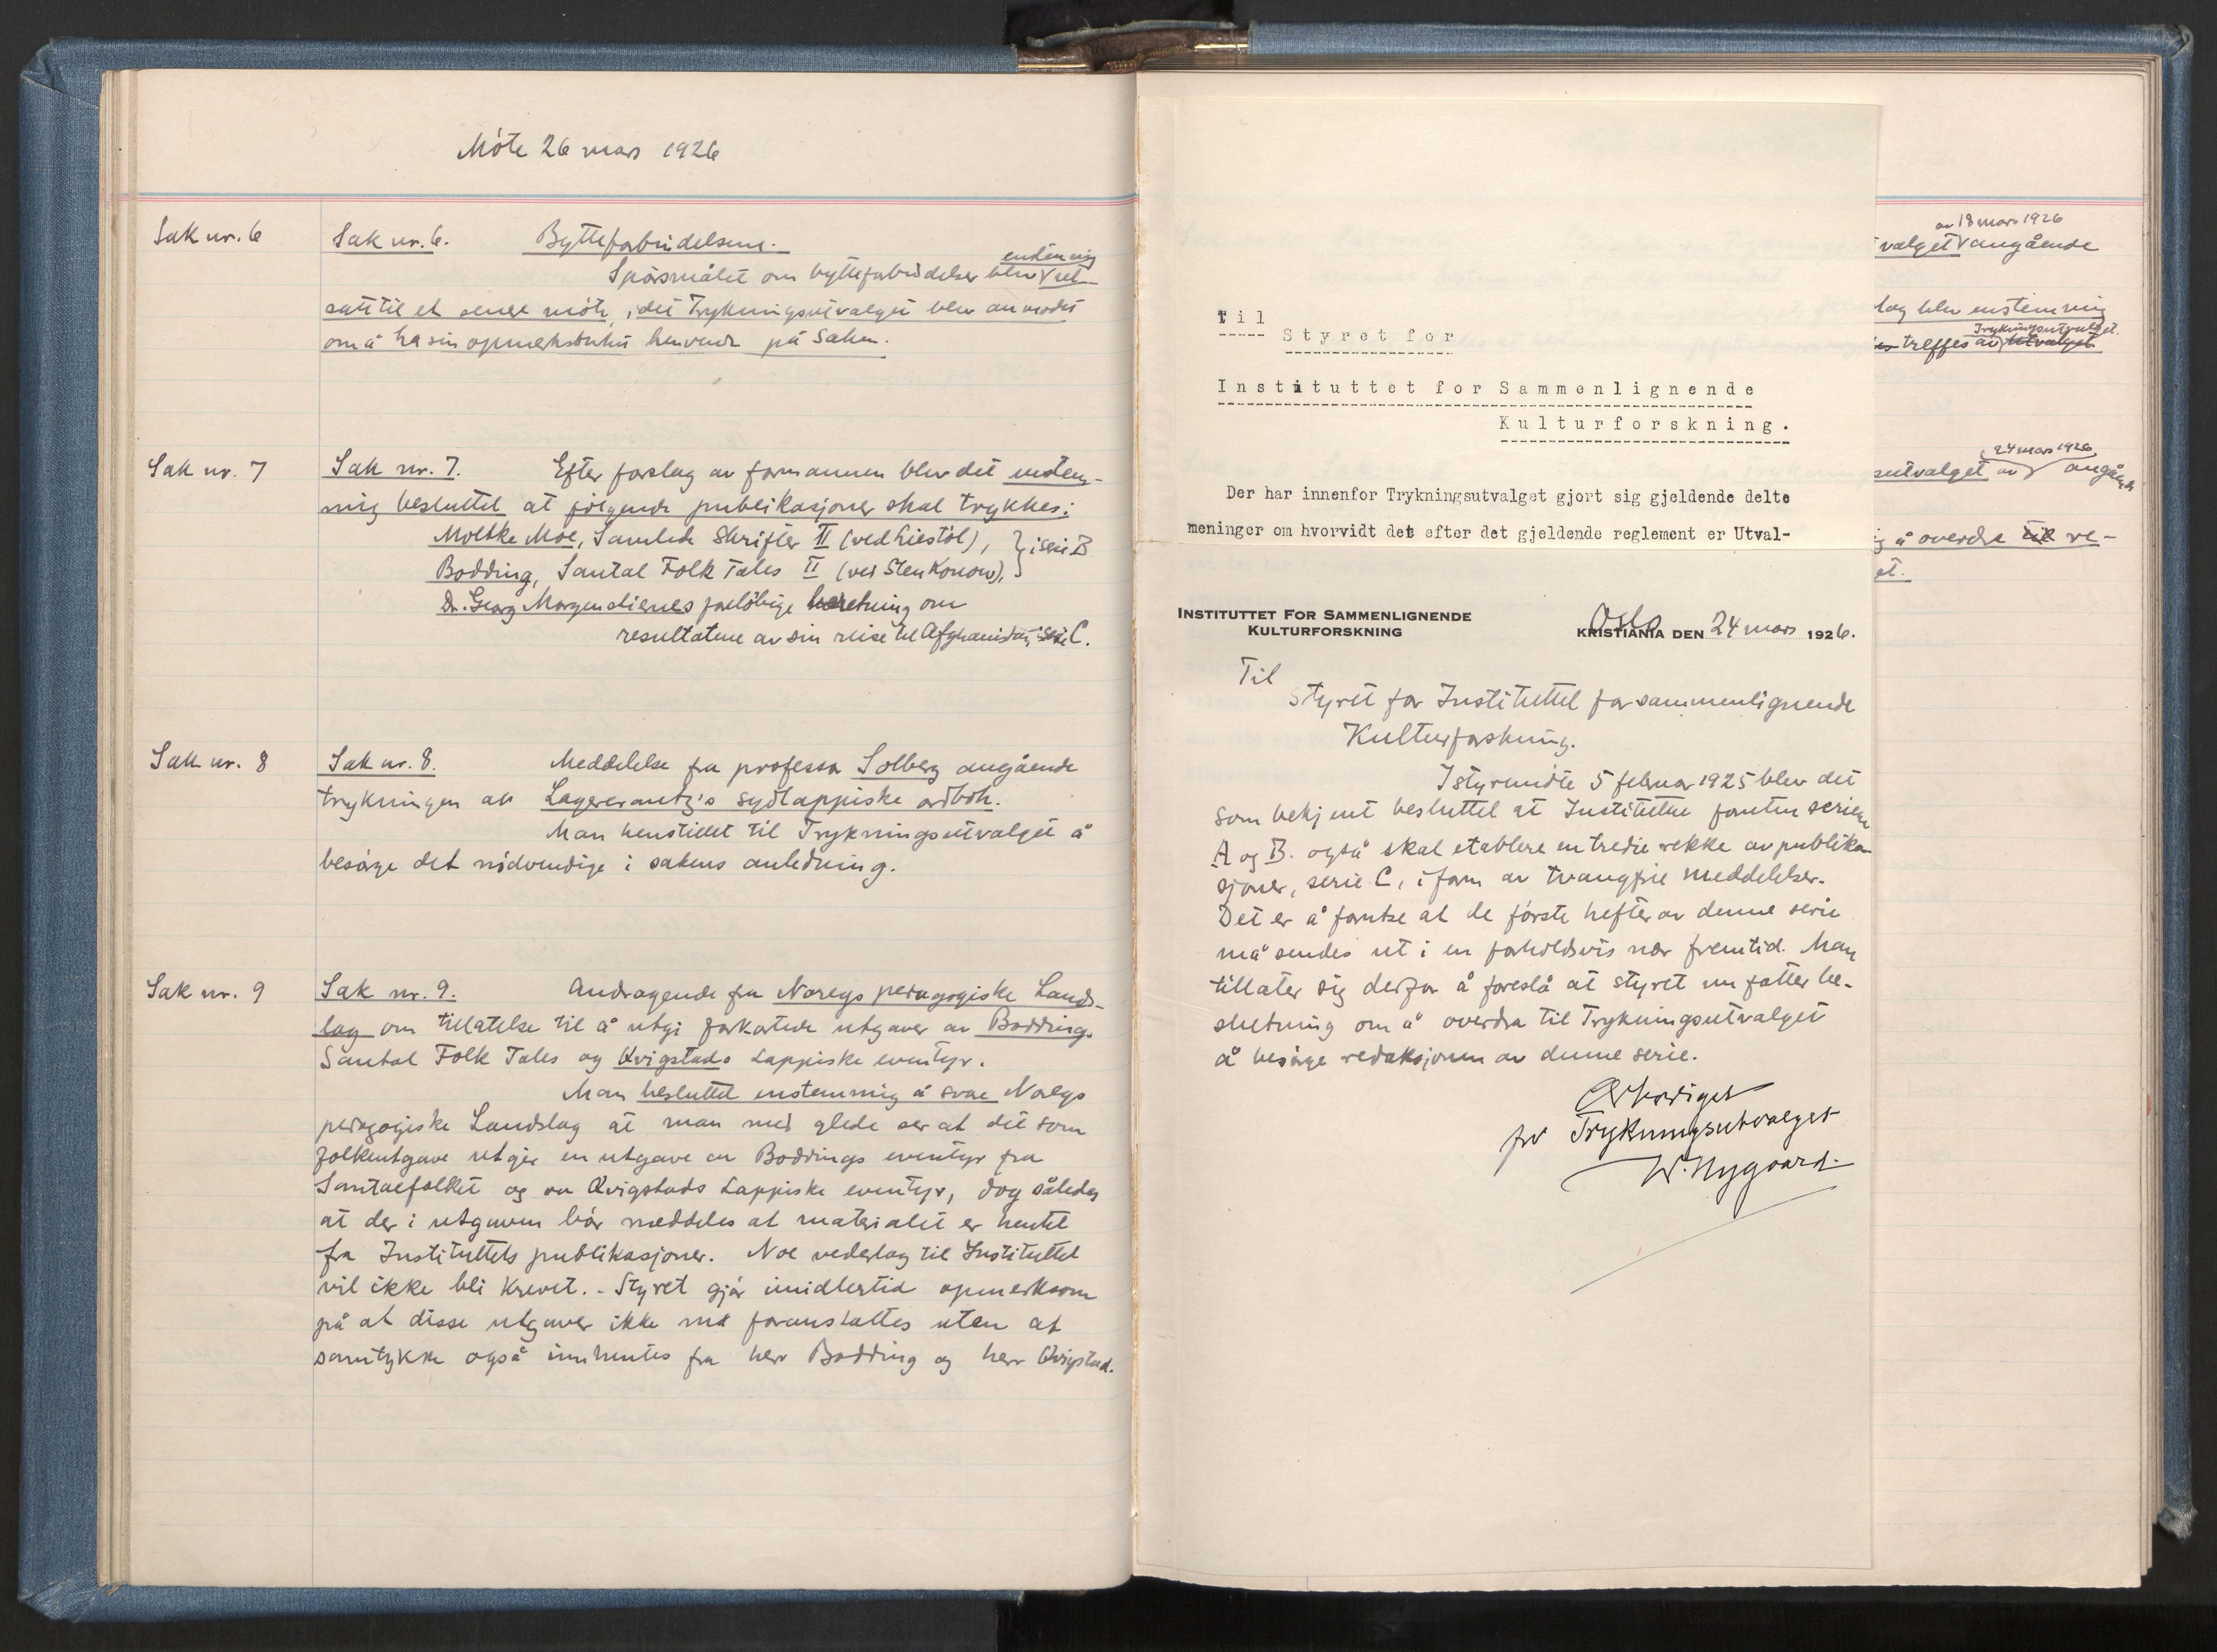 Møte 26 mars 1926
Sak nr. 6
Sak nr. 6. Bytteforbindelsene.
Spørsmålet om bytteforbindelser blev enstemmig ut-
satt til et senere møte, idet Trykningsutvalget blev anmodet
om å ha sin opmerksomhet henvendt på saken.
Sak nr. 7
Sak nr. 7. Efter forslag av formannen blev det enstem-
mig besluttet at følgende publikasjoner skal trykkes:
Moltke Moe, Samlede Skrifter II (ved Liestøl), } i serie B
Bodding, Santal Folk Tales II (ved Sten Konow),
Dr. Georg Morgenstiernes foreløbige beretning om
resultatene av sin reise til Afghanistan, i serie C.
Sak nr. 8
Sak nr. 8. Meddelelse fra professor Solberg angående
trykningen av Lagercrantz's sydlappiske ordbok.
Man henstillet til Trykningsutvalget å
besørge det nødvendige i sakens anledning.
Sak nr. 9
Sak nr. 9. Andragende fra Noregs pedagogiske Lands-
lag om tillatelse til å utgi forkortede utgaver av Boddings
Santal Folk Tales og Qvigstads Lappiske eventyr.
Man besluttet enstemmig å svare Noregs
pedagogiske Landslag at man med glede ser at det som
folkeutgave utgir en utgave av Boddings eventyr fra
Santalfolket og av Qvigstads Lappiske eventyr, dog således
at der i utgaven bør meddeles at materialet er hentet
fra Instituttets publikasjoner. Noe vederlag til Instituttet
vil ikke bli krevet. - Styret gjør imidlertid opmerksom
på at disse utgaver ikke må foranstaltes uten at
samtykke også innhentes fra herr Bodding og herr Qvigstad.
Til
Styret for
Instituttet for Sammenlignende
Kulturforskning.
Der har innenfor Trykningsutvalget gjort sig gjeldende delte
meninger om hvorvidt det efter det gjeldende reglement er Utval-
INSTITUTTET FOR SAMMENLIGNENDE
KULTURFORSKNING
Oslo
KRISTIANIA DEN 24 mars 1926.
Til
Styret for Instituttet for sammenlignende
Kulturforskning.
I styremøte 5 februar 1925 blev det
som bekjent besluttet at Instituttet foruten seriene
A og B. også skal etablere en tredie rekke av publika-
sjoner, serie C, i form av tvangfrie meddelelser.
Det er å forutse at de første hefter av denne serie
må sendes ut i en forholdsvis nær fremtid. Man
tillater sig derfor å foreslå at styret nu fatter be-
slutning om å overdra til Trykningsutvalget
å besørge redaksjonen av denne serie.
Ærbødigst
for Trykningsutvalget
W. Nygaard.
av 18 mars 1926
valget angående
lag blev enstemmig
Trykningsutvalget.
treffes av Utvalget
24 mars 1926
sutvalget av angående
g å overdra til re-
et.